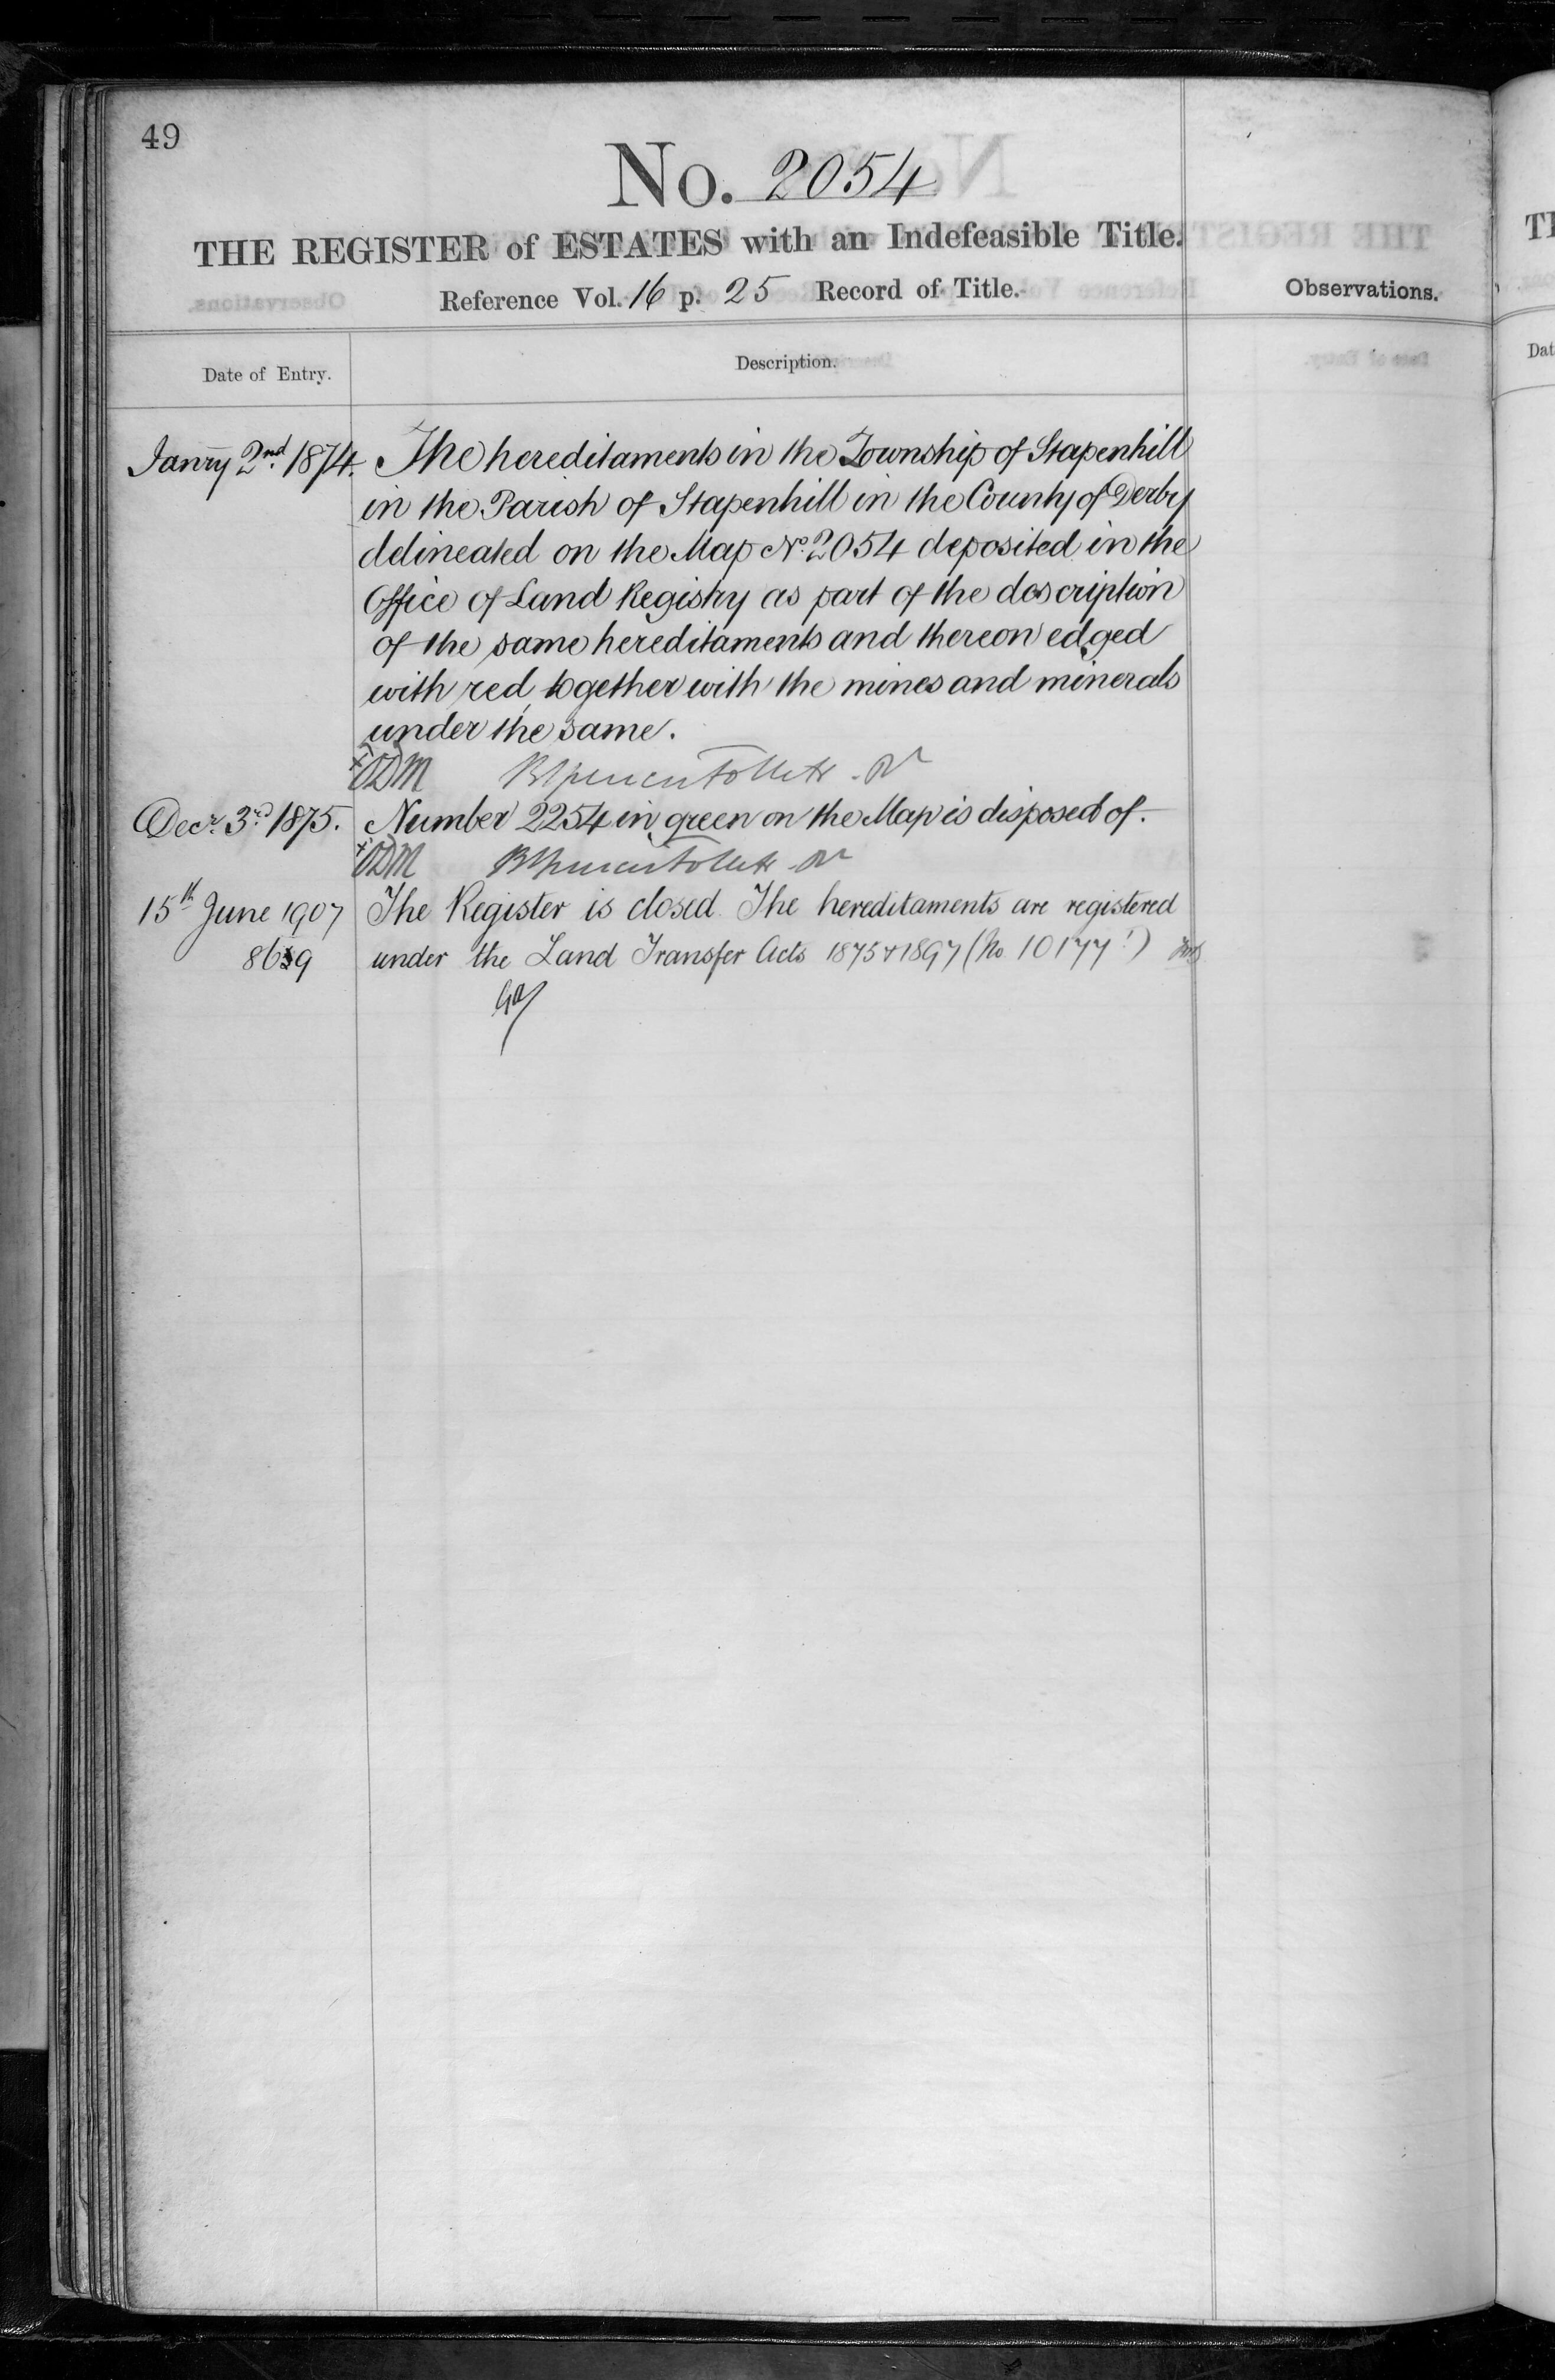 49
No. 2054
THE REGISTER of ESTATES with an Indefeasible Title.
Reference Vol. 16 p. 25 Record of Title.
Observations.
Date of Entry.
Description.
Janry 2nd 1874. The hereditaments in the Township of Stapenhill
in the Parish of Stapenhill in the County of Derby
delineated on the Map No. 2054 deposited in the
Office of Land Registry as part of the description
of the same hereditaments and thereon edged
with red, together with the mines and minerals
under the same.
Decr. 3rd 1875. Number 2254 in green on the Map is disposed of.
15th June 1907 The Register is closed. The hereditaments are registered
under the Land Transfer Acts 1875 & 1897 (No 10177)